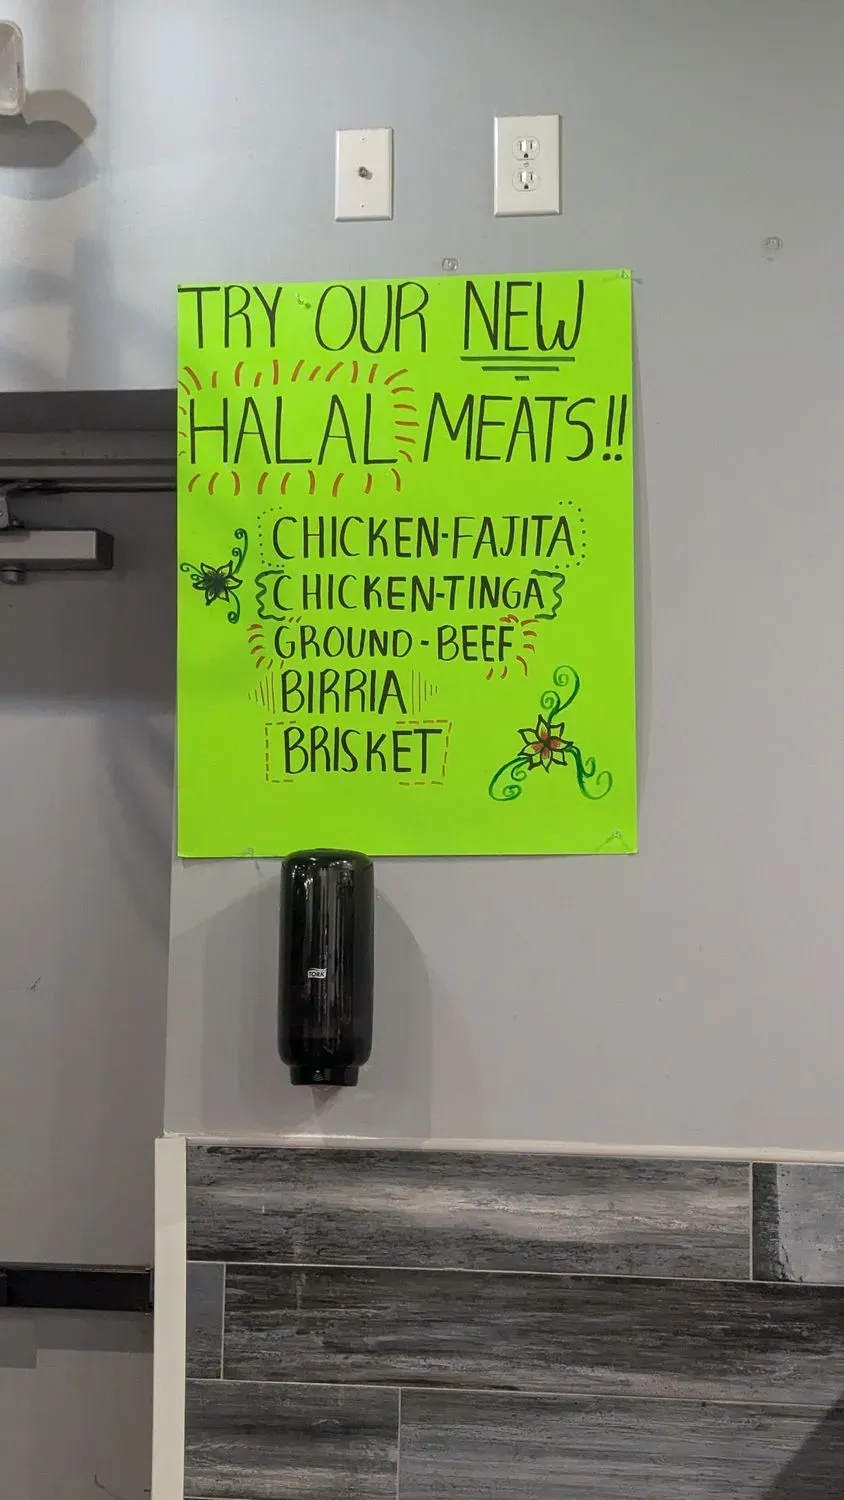 TRY OUR NEW
HALAL MEATS!!
CHICKEN-FAJITA
CHICKEN-TINGA
GROUND-BEEF
BIRRIA
BRISKET
TORK